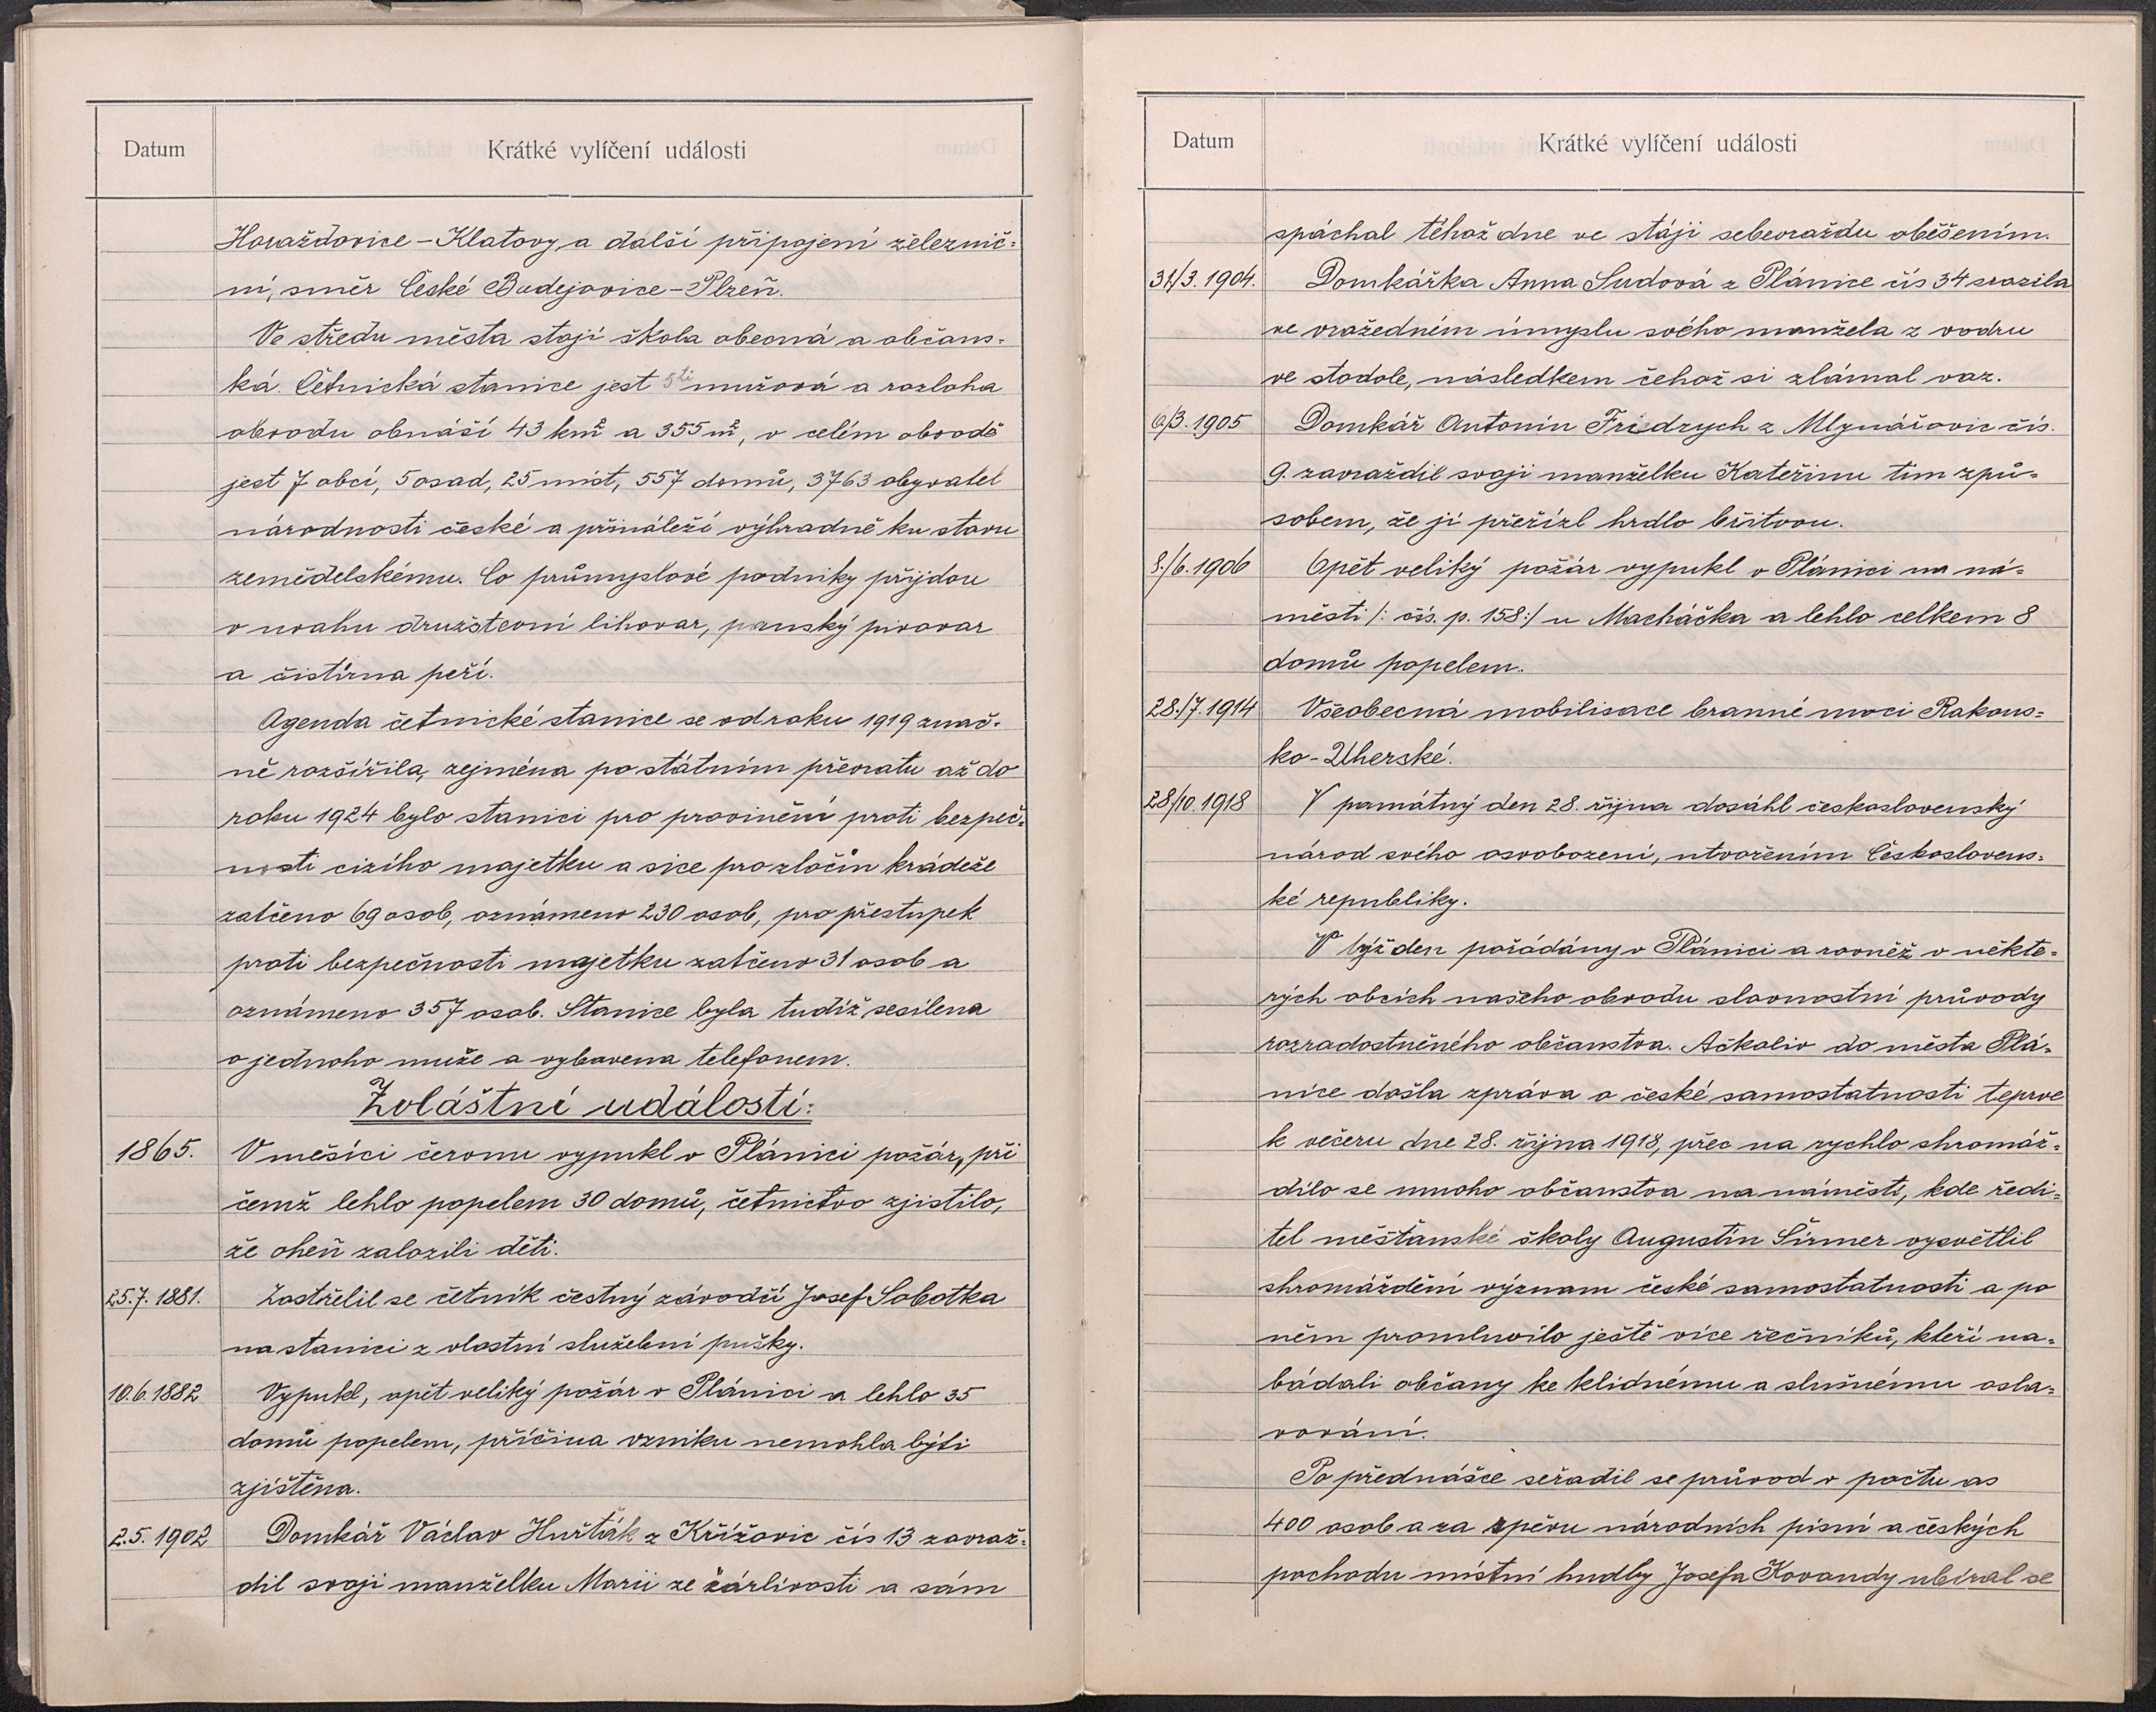 Datum
Krátké vylíčení události
Horažďovice – Klatovy, a další připojení železnič=
ní, směr České Budejovice – Plzeň.
Ve středu města stojí škola obecná a občans=
ká. Četnická stanice jest 5ti mužová a rozloha
obvodu obnáší 43 km² a 355 m², v celém obvodě
jest 7 obcí, 5 osad, 25 míst, 557 domů, 3763 obyvatel
národnosti české a přináleží výhradně ku stavu
zemědelskému. Co průmyslové podniky přijdou
v uvahu družstevní lihovar, panský pivovar
a čistírna peří.
Agenda četnické stanice se od roku 1919 znač=
ně rozšířila, zejména po státním převratu až do
roku 1924 bylo stanicí pro provinění proti bezpeč=
nosti cizího majetku a sice pro zločin krádeže
zatčeno 69 osob, oznámeno 230 osob, pro přestupek
proti bezpečnosti majetku zatčeno 31 osob a
oznámeno 357 osob. Stanice byla tudíž sesilena
o jednoho muže a vybavena telefonem.
Zvláštní události:
1865. V měsíci červnu vypukl v Plánici požár, při
čemž lehlo popelem 30 domů, četnictvo zjistilo,
že oheň založili děti.
25.7. 1881. Zastřelil se četník čestný závodčí Josef Sobotka
na stanici z vlastní služební pušky.
10.6. 1882 Vypukl, opět veliký požár v Plánici a lehlo 35
domů popelem, příčina vzniku nemohla býti
zjištěna.
2.5. 1902 Domkář Václav Huřták z Křížovic čís 13 zavraž=
dil svoji manželku Marii ze žárlivosti a sám
Datum
Krátké vylíčení události
spáchal téhož dne ve stáji sebevraždu oběšením.
31/3. 1904. Domkářka Anna Sudová z Plánice čís 34 srazila
ve vražedném úmyslu svého manžela z vodru
ve stodole, následkem čehož si zlámal vaz.
6/3. 1905 Domkář Antonín Fridrych z Mlynářovic čís.
9. zavraždil svoji manželku Kateřinu tím způ=
sobem, že jí přeřízl hrdlo břitvou.
8./6. 1906 Opět veliký požár vypukl v Plánici na ná=
městí /: čís. p. 158:/ u Macháčka a lehlo celkem 8
domů popelem.
28./7. 1914 Všeobecná mobilisace branné moci Rakous=
ko - Uherské.
28/10. 1918 V památný den 28. října dosáhl československý
národ svého osvobození, utvořením Českosloven̄s=
ké republiky.
V týž den pořádány v Plánici a rovněž v někte=
rých obcích našeho obvodu slavnostní průvody
rozradostněného občanstva. Ačkoliv do města Plá=
nice došla zpráva o české samostatnosti teprve
k večeru dne 28. října 1918, přec na rychlo shromáž=
dilo se mnoho občanstva na náměstí, kde ředi=
tel měšťanské školy Augustin Širmer vysvětlil
shromáždění význam české samostatnosti a po
něm promluvilo ještě více řečníků, kteří na=
bádali občany ke klidnému a slušnému osla=
vování.
Po přednášce seřadil se průvod v počtu as
400 osob a za zpěvu národních písní a českých
pochodu místní hudby Josefa Kovandy ubíral se